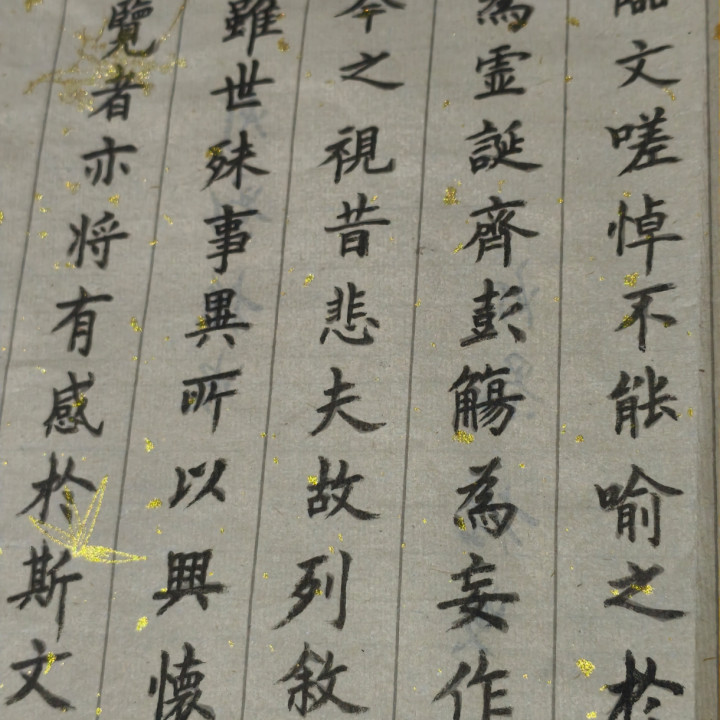 臨文嗟悼不能喻之於
為霊誕齊彭觴為妄作
今之視昔悲夫故列敘
雖世殊事異所以興懷
覽者亦将有感於斯文